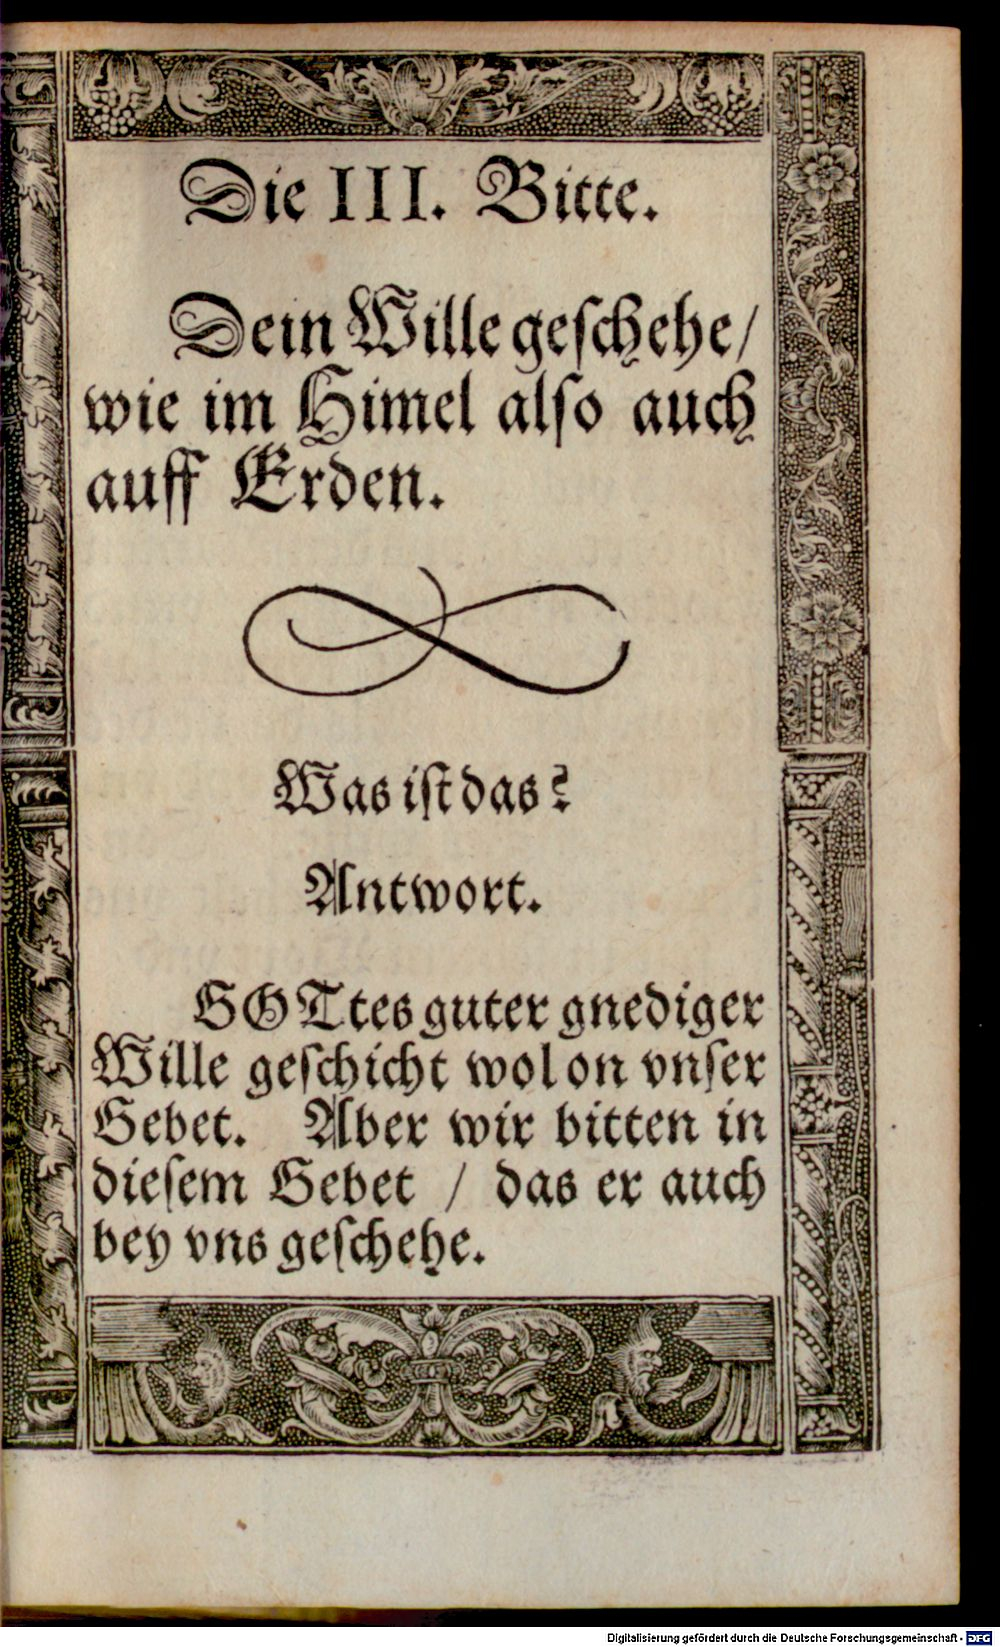 Die III. Bitte.
Dein Wille geſchehe/
wie im Himel alſo auch
auff Erden.
Was iſt das?
Antwort.
GOTtes guter gnediger
Wille geſchicht wol on vnſer
Gebet. Aber wir bitten in
dieſem Gebet / das er auch
bey vns geſchehe.
Digitalisierung gefördert durch die Deutsche Forschungsgemeinschaft - DFG